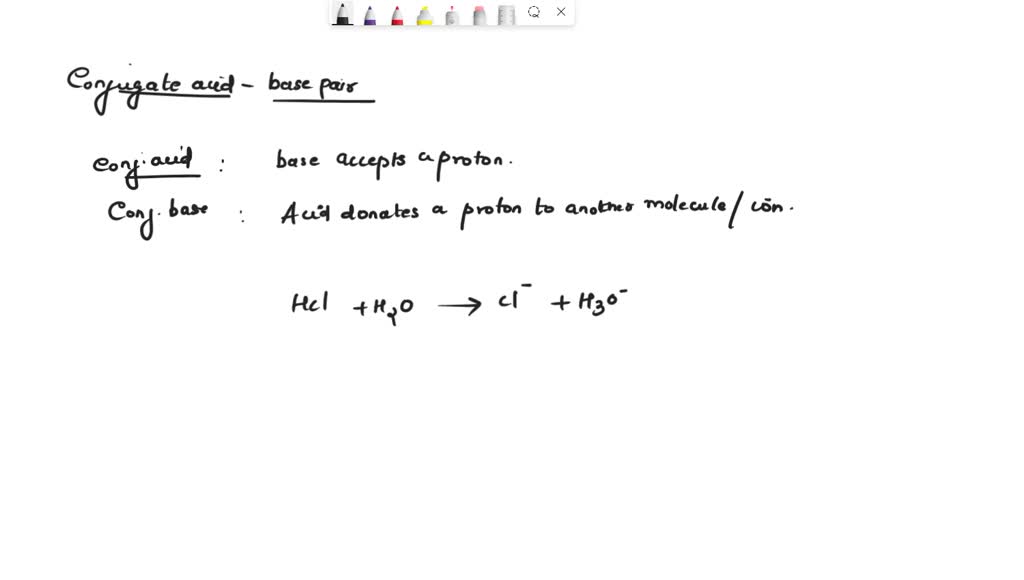 Conjugate acid - base pair
Conj. acid : base accepts a proton.
Conj. base : Acid donates a proton to another molecule / ion.
Hcl + H₂O → cl⁻ + H₃O⁻